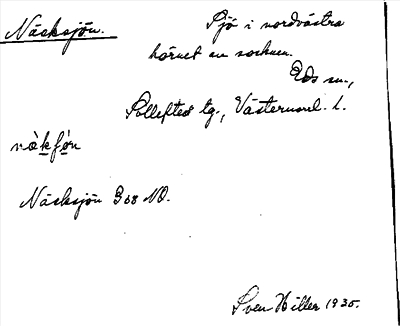 Näsksjön.
Sjö i nordvästra
hörnet av socknen.
Eds sn.,
Sollefteå tg., Västernorrl. l.
Näsksjön 368 NO.
Sven Hiller 1935.